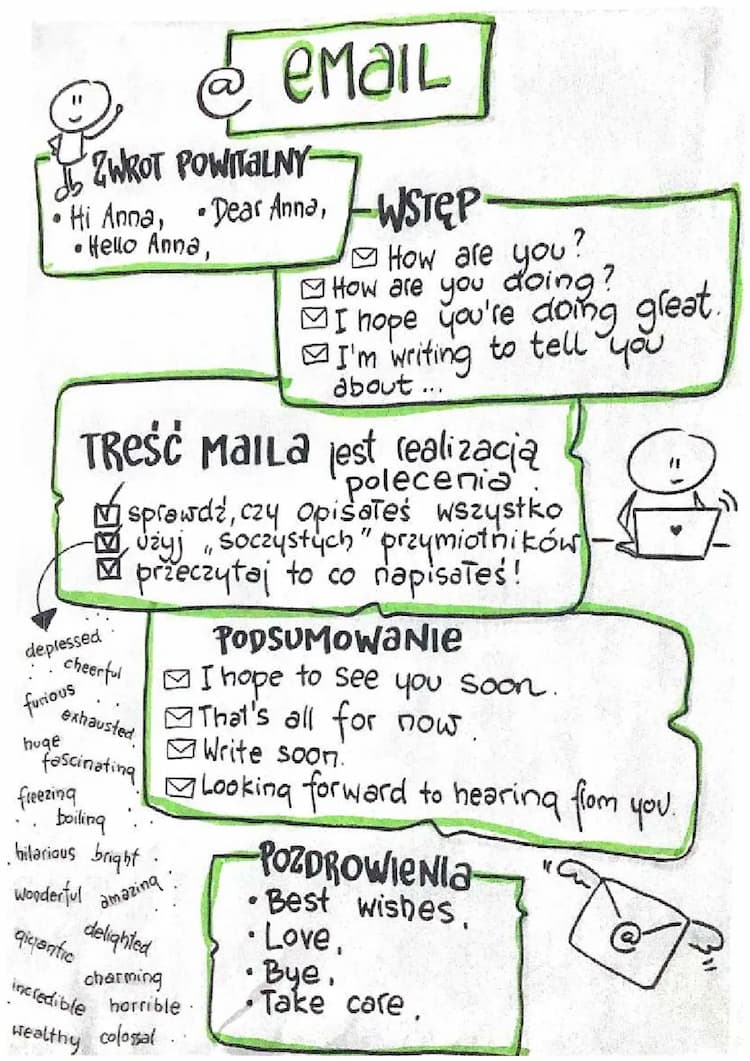 @ EMAIL
ZWROT POWITALNY
• Hi Anna, • Dear Anna,
• Hello Anna,
WSTĘP
How are you?
How are you doing?
I hope you're doing great.
I'm writing to tell you
about...
TREŚĆ MAILA jest realizacją
polecenia.
sprawdź, czy opisałeś wszystko
użyj „soczystych" przymiotników
przeczytaj to co napisałeś!
depressed
cheerful
furious
exhausted
huge
fascinating
freezing
boiling
hilarious bright
wonderful amazing
gigantic delighted
charming
incredible horrible
wealthy colossal
PODSUMOWANIE
I hope to see you soon.
That's all for now.
Write soon.
Looking forward to hearing from you.
POZDROWIENIA
• Best wishes,
• Love,
• Bye,
• Take care,
@